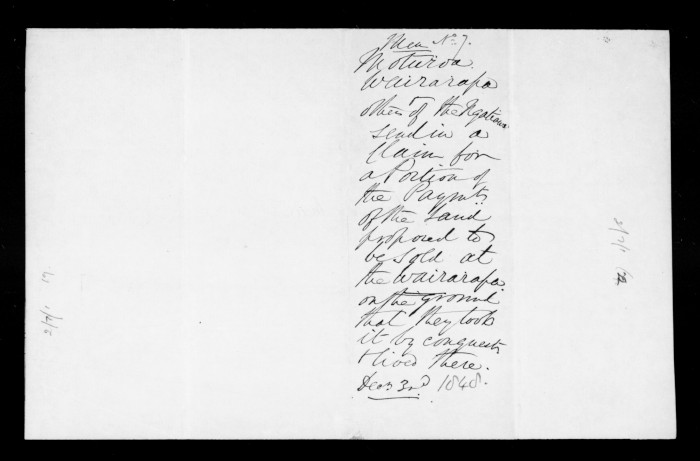 Mem No 7.
Moturoa
Wairarapa
others of the Ngatiawa
send in a
Claim for
a Portion of
the Paymts
of the Land
proposed to
be sold at
the Wairarapa
on the ground
that they took
it by conquest
& lived there.
Decr 3rd 1848.